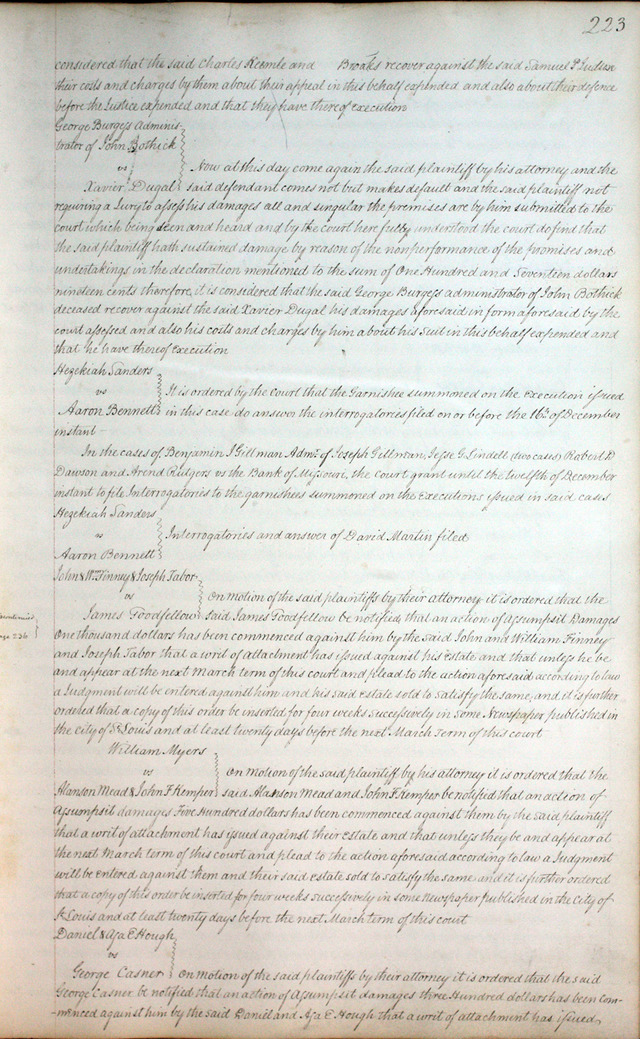 223
considered that the said Charles Keemle and Brooks recover against the said Samuel P Justice
their costs and charges by them about their appeal in this behalf expended and also about their defence
before the Justice expended and that they have thereof execution
George Burgess Adminis-
trator of John Bothick
vs
Now at this day come again the said plaintiff by his attorney and the
Xavier Dugal said defendant comes not but makes default and the said plaintiff not
requiring a Jury to assess his damages all and singular the premises are by him submitted to the
court which being seen and heard and by the court here fully understood the court do find that
the said plaintiff hath sustained damage by reason of the nonperformance of the promises and
undertakings in the declaration mentioned to the sum of One Hundred and Seventeen dollars
nineteen cents therefore, it is considered that the said George Burgess administrator of John Bothick
deceased recover against the said Xavier Dugal his damages aforesaid in form aforesaid by the
court assessed and also his costs and charges by him about his suit in this behalf expended and
that he have thereof execution
Hezekiah Sanders
vs
It is ordered by the Court that the Garnishee summoned on the Execution issued
Aaron Bennett in this case do answer the interrogatories filed on or before the 16th of December
instant
In the cases of Benjamin I Gillman Admr. of Joseph Gillman, Jesse G Lindell (two cases) Robert D
Dawson and Arend Rutgers vs the Bank of Missouri, the court grant until the twelfth of December
instant to file Interrogatories to the garnishees summoned on the Executions issued in said cases
Hezekiah Sanders
vs
Interrogatories and answer of David Martin filed
Aaron Bennett
John & Wm. Finney & Joseph Tabor
vs
On motion of the said plaintiffs by their attorney it is ordered that the
James Foodfellow said James Foodfellow be notified that an action of Assumpsit Damages
One thousand dollars has been commenced against him by the said John and William Finney
and Joseph Tabor that a writ of attachment has issued against his Estate and that unless he be
and appear at the next March term of this court and plead to the action aforesaid according to law
a Judgment will be entered against him and his said Estate sold to satisfy the same, and it is further
ordered that a copy of this order be inserted for four weeks successively in some Newspaper published in
the city of St Louis and at least twenty days before the next March Term of this court
William Myers
vs
On motion of the said plaintiff by his attorney it is ordered that the
Alanson Mead & John F Kemper said Alanson Mead and John F Kemper be notified that an action of
Assumpsit damages Five Hundred dollars has been commenced against them by the said plaintiff
that a writ of attachment has issued against their Estate and that unless they be and appear at
the next March term of this court and plead to the action aforesaid according to law a Judgment
will be entered against them and their said estate sold to satisfy the same and it is further ordered
that a copy of this order be inserted for four weeks successively in some newspaper published in the City of
St Louis and at least twenty days before the next March term of this court
Daniel & Asa E Hough
vs
George Casner On motion of the said plaintiffs by their attorney it is ordered that the said
George Casner be notified that an action of Assumpsit damages three Hundred dollars has been com-
-menced against him by the said Daniel and Asa E Hough that a writ of attachment has issued